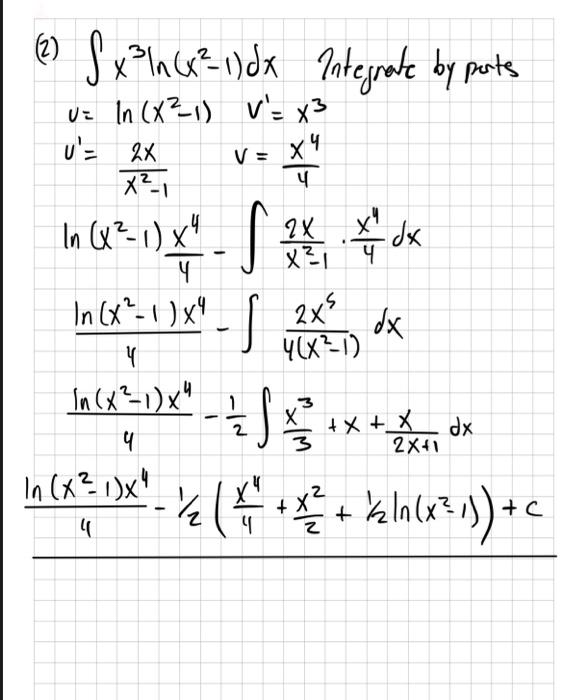 (2) ∫ x³ ln(x²-1)dx Integrate by parts
u = ln(x²-1) v' = x³
u' = 2x/(x²-1) v = x⁴/4
ln(x²-1) x⁴/4 - ∫ 2x/(x²-1) · x⁴/4 dx
ln(x²-1)x⁴/4 - ∫ 2x⁵/4(x²-1) dx
ln(x²-1)x⁴/4 - 1/2 ∫ x³/3 + x + x/(2x+1) dx
ln(x²-1)x⁴/4 - 1/2 (x⁴/4 + x²/2 + 1/2 ln(x²-1)) + c